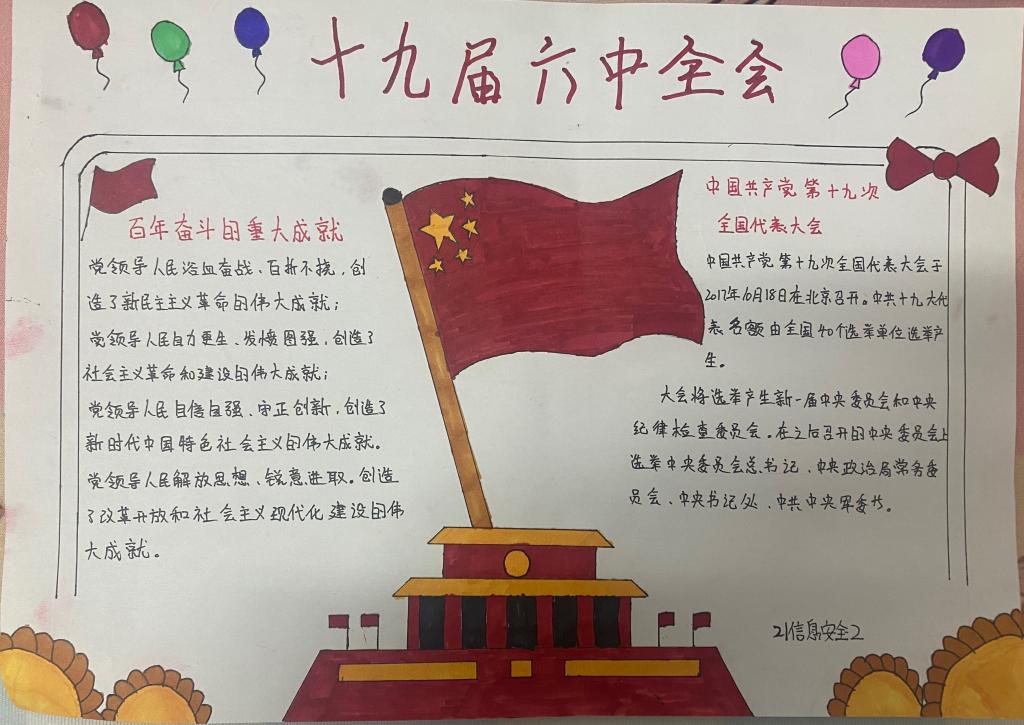 十九届六中全会
百年奋斗的重大成就
党领导人民浴血奋战、百折不挠，创
造了新民主主义革命的伟大成就；
党领导人民自力更生、发愤图强，创造了
社会主义革命和建设的伟大成就；
党领导人民自信自强、守正创新，创造了
新时代中国特色社会主义的伟大成就。
党领导人民解放思想、锐意进取。创造
了改革开放和社会主义现代化建设的伟
大成就。
中国共产党第十九次
全国代表大会
中国共产党第十九次全国代表大会于
2017年10月18日在北京召开。中共十九大代
表名额由全国40个选举单位选举产
生。
大会将选举产生新一届中央委员会和中央
纪律检查委员会。在之后召开的中央委员会上
选举中央委员会总书记、中央政治局常务委
员会、中央书记处、中共中央军委书。
21信息安全2